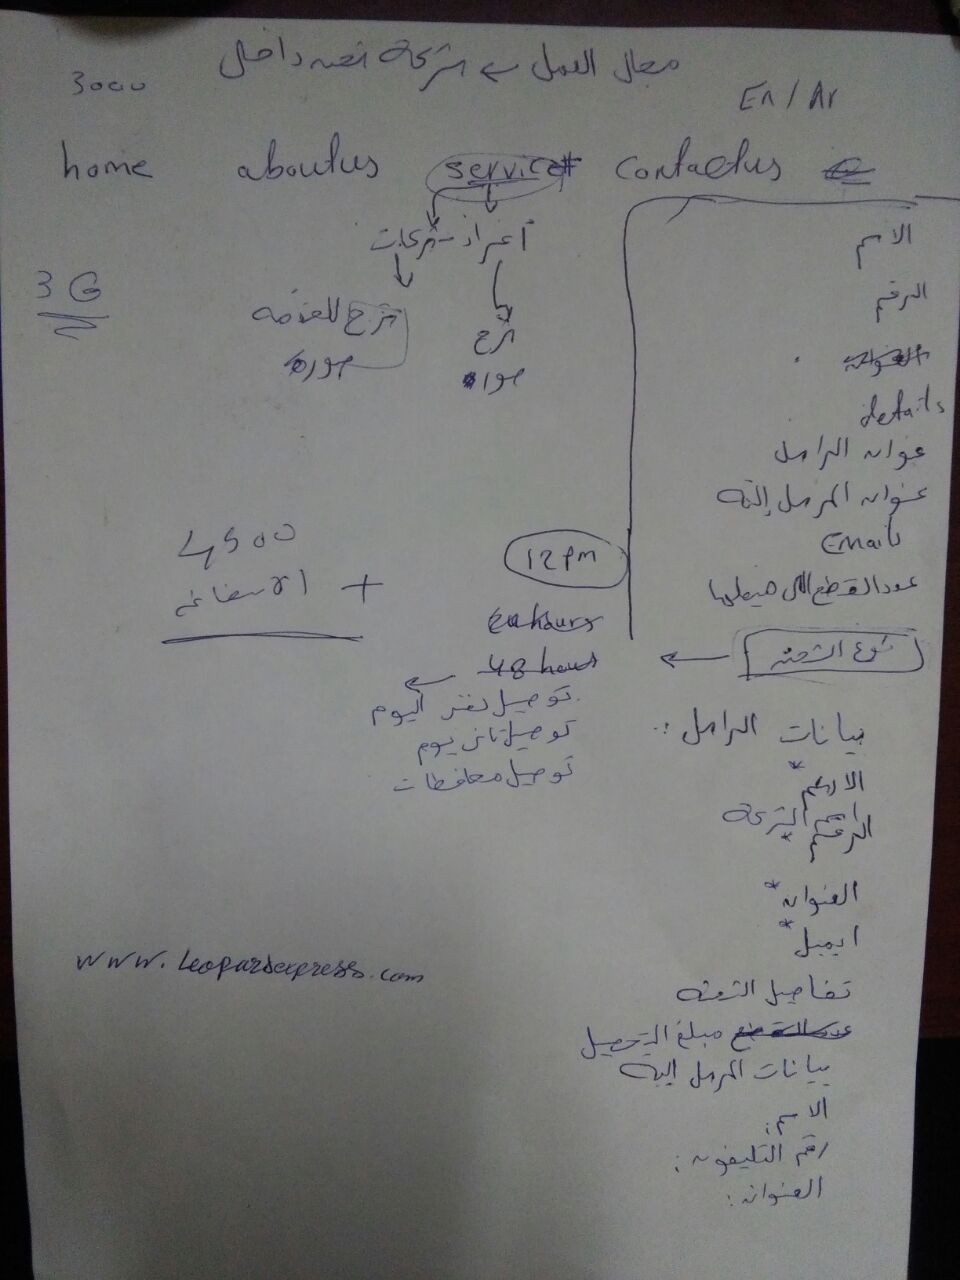 مجال العمل ← شركة شحن داخلى
3000
En / Ar
home aboutus service contactus
أفراد - شركات
الاسم
3 G
الرقم
شرح للخدمة
شرح
صورة
صورة
العنوان
details
عنوان الراسل
عنوان المرسل إلية
Email
4500
+ الاستضافة
12 pm
عدد القطع اللى هيبعتها
24 hours
48 hours
نوع الشحنة
توصيل نفس اليوم
توصيل تانى يوم
توصيل محافظات
بيانات الراسل :
الاسم *
اسم الشركة
الرقم *
العنوان *
ايميل *
www.leopardexpress.com
تفاصيل الشحنة
عدد القطع مبلغ التحصيل
بيانات المرسل إلية
الاسم :
رقم التليفون :
العنوان :